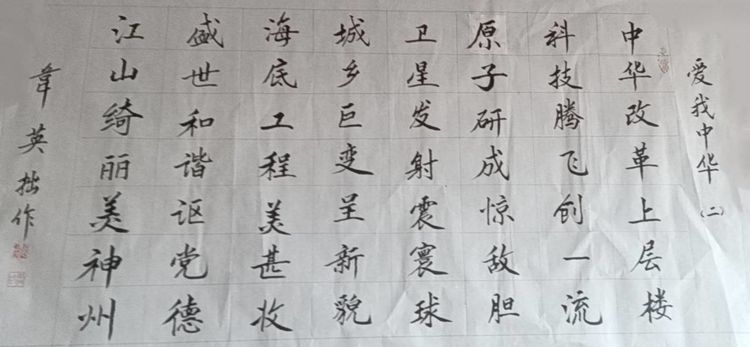 爱我中华（二）
中华改革上层楼
科技腾飞创一流
原子研成惊敌胆
卫星发射震寰球
城乡巨变呈新貌
海底工程美甚收
盛世和谐讴党德
江山绮丽美神州
韦英拙作